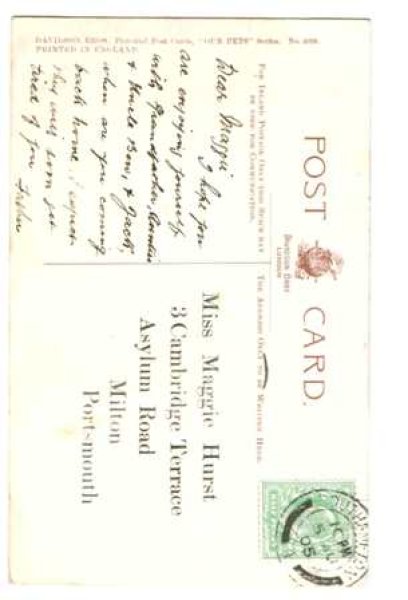 DAVIDSON BROS. Pictorial Post Cards, "OUR PETS" Series. No.
PRINTED IN ENGLAND.
POST CARD.
FOR INLAND POSTAGE ONLY THIS SPACE MAY
BE USED FOR COMMUNICATION.
THE ADDRESS ONLY TO BE WRITTEN HERE.
DAVIDSON BROS
LONDON
Dear Maggie
I hope you
are enjoying yourself
with Grandfather Auntie
& Uncle Tom, & Jack,
when are you coming
back home I expect
they will soon get
tired of you
Miss Maggie Hurst
3 Cambridge Terrace
Asylum Road
Milton
Portsmouth
PM
5
05